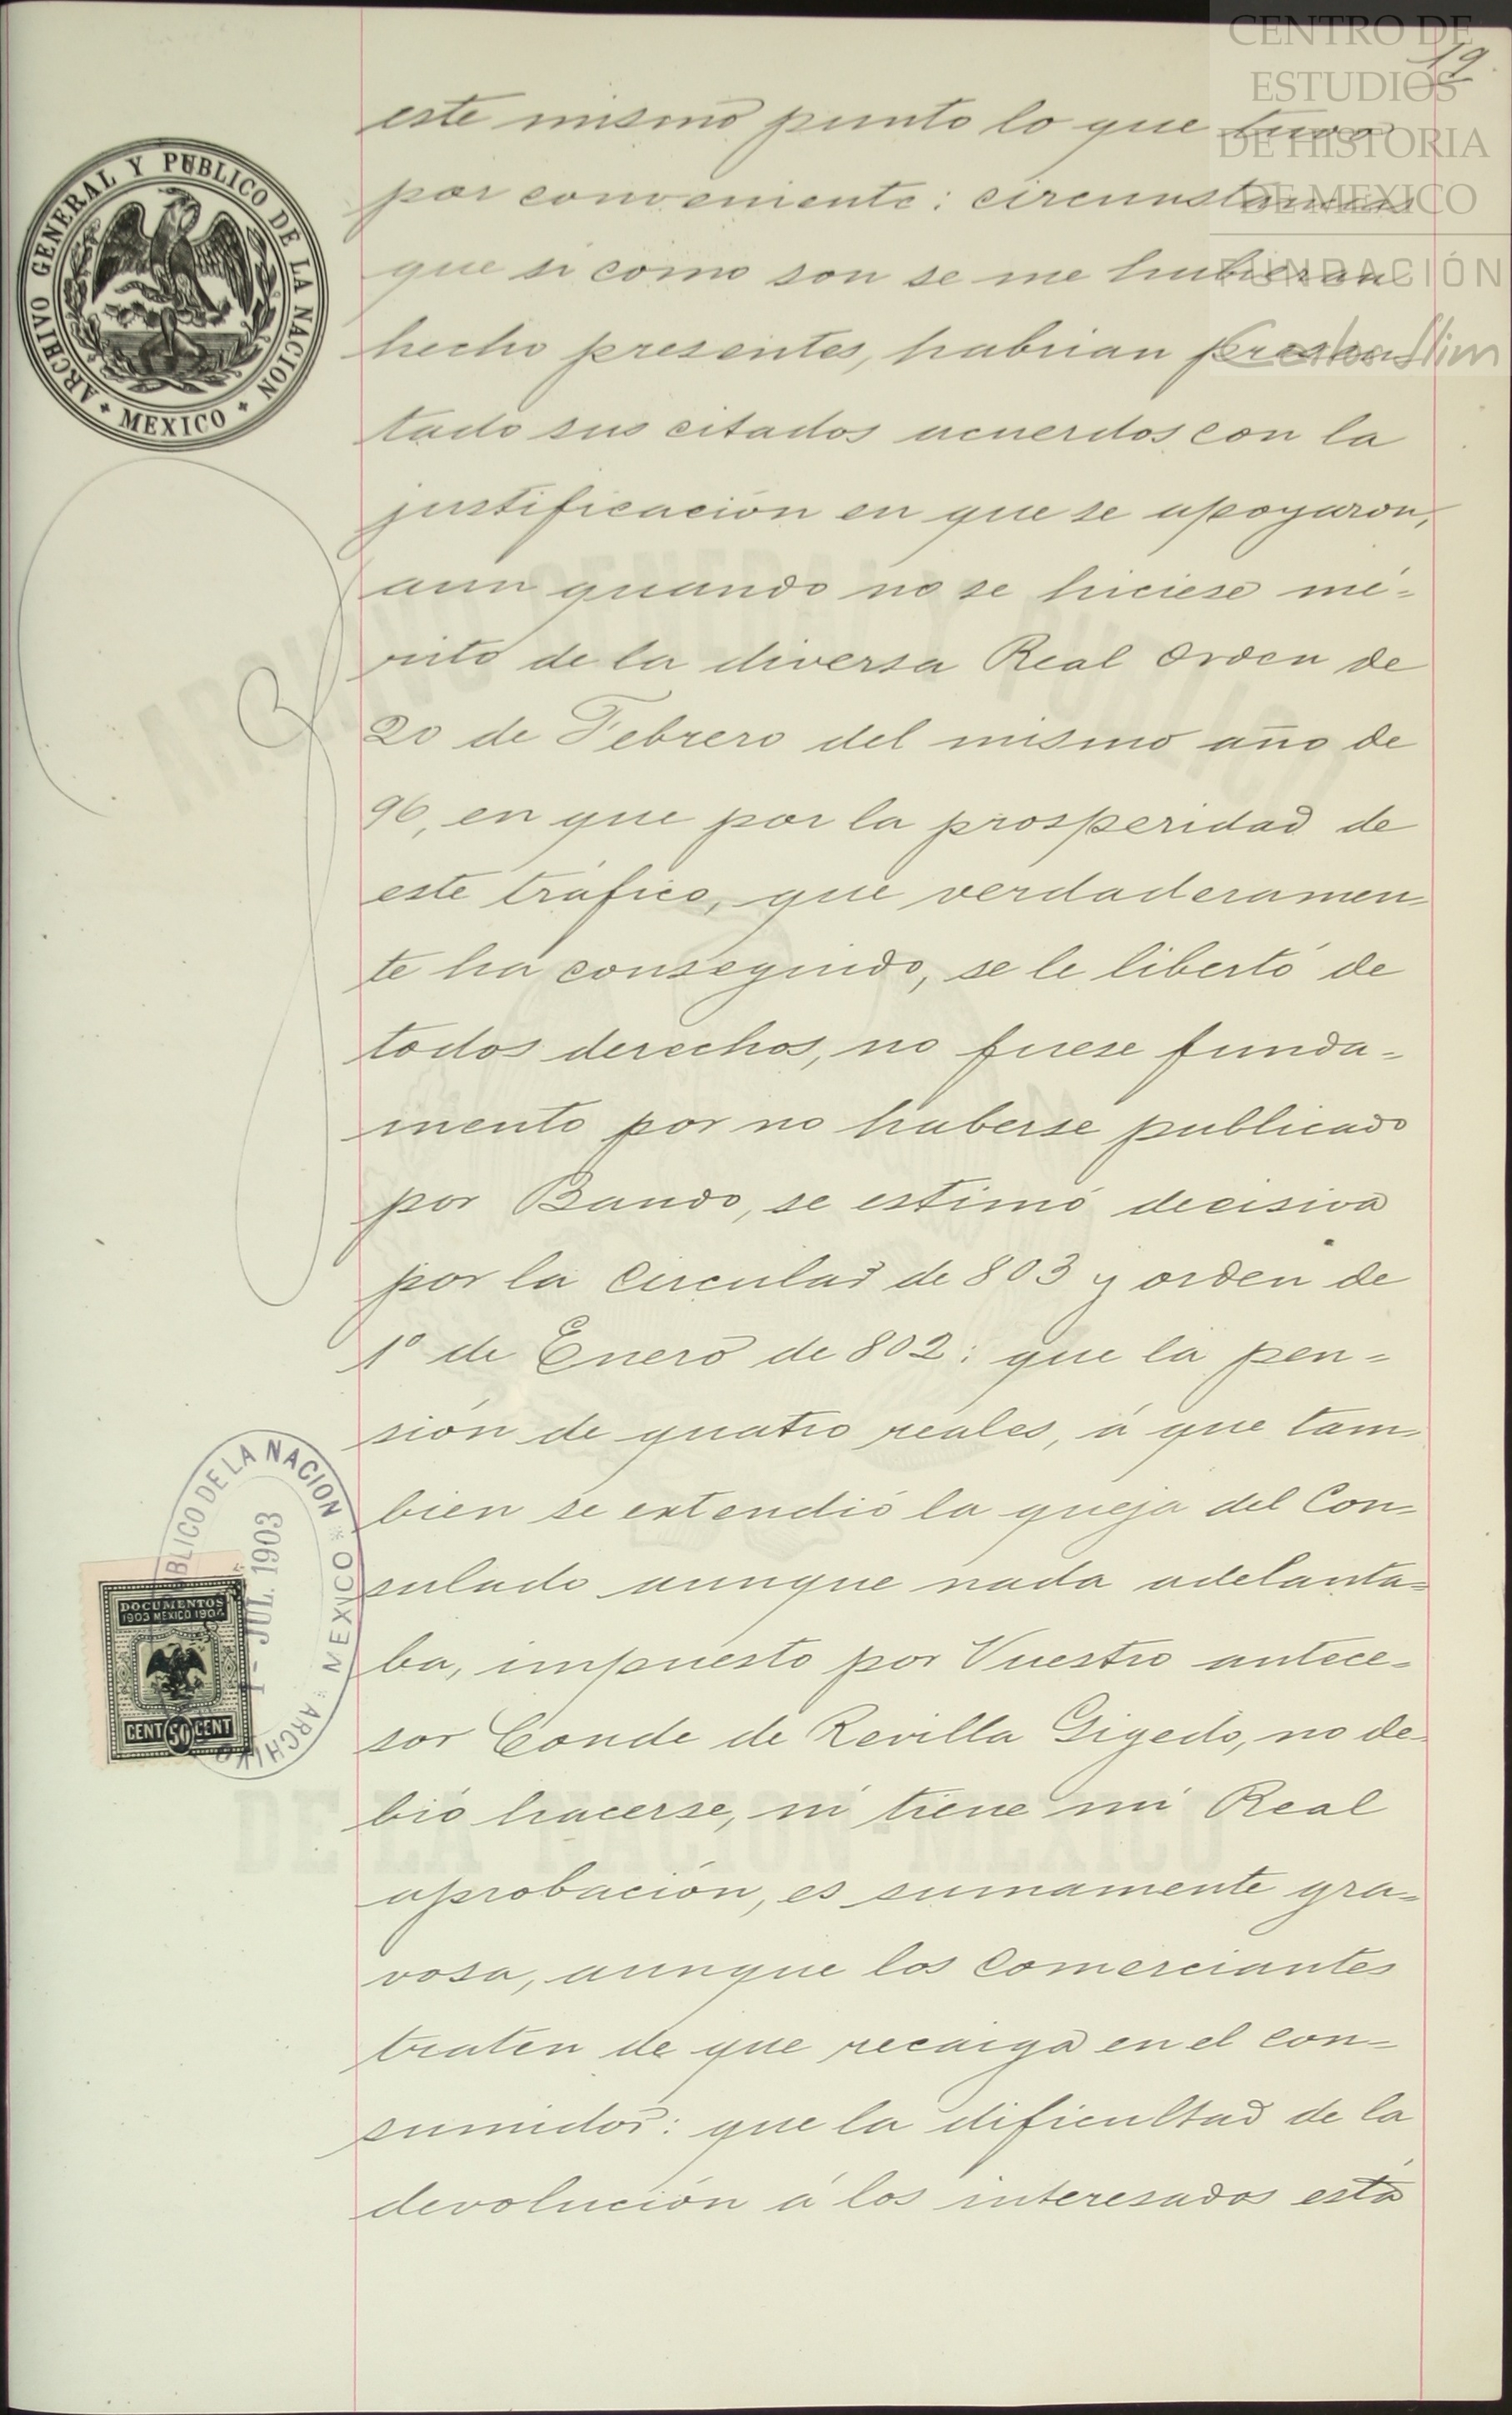 CENTRO DE
ESTUDIOS
DE HISTORIA
DE MEXICO
FUNDACIÓN
Carlos Slim
19
ARCHIVO GENERAL Y PUBLICO DE LA NACION
MEXICO
este mismo punto lo que tuvo
por conveniente: circunstancias
que si como son se me hubieran
hecho presentes, habrian presen
tado sus citados acuerdos con la
justificación en que se apoyaron,
aun quando no se hiciese mé=
rito de la diversa Real Orden de
20 de Febrero del mismo año de
96, en que por la prosperidad de
este tráfico, que verdaderamen=
te ha conseguido, se le libertó de
todos derechos, no fuese funda=
mento por no haberse publicado
por Bando, se estimó decisiva
por la Circular de 803 y orden de
1º de Enero de 802: que la pen=
sión de quatro reales, á que tam=
bien se extendió la queja del Con=
sulado aunque nada adelanta=
ba, impuesto por Vuestro antece=
sor Conde de Revilla Gigedo, no de=
bió hacerse, ni tiene mi Real
aprobación, es sumamente gra=
vosa, aunque los Comerciantes
traten de que recaiga en el con=
sumidor: que la dificultad de la
devolución á los interesados está
ARCHIVO GENERAL Y PUBLICO
DE LA NACION-MEXICO
BLICO DE LA NACION
MEXICO
ARCHIVO
1- JUL. 1903
DOCUMENTOS
1903 MEXICO 1904
CENT 50 CENT